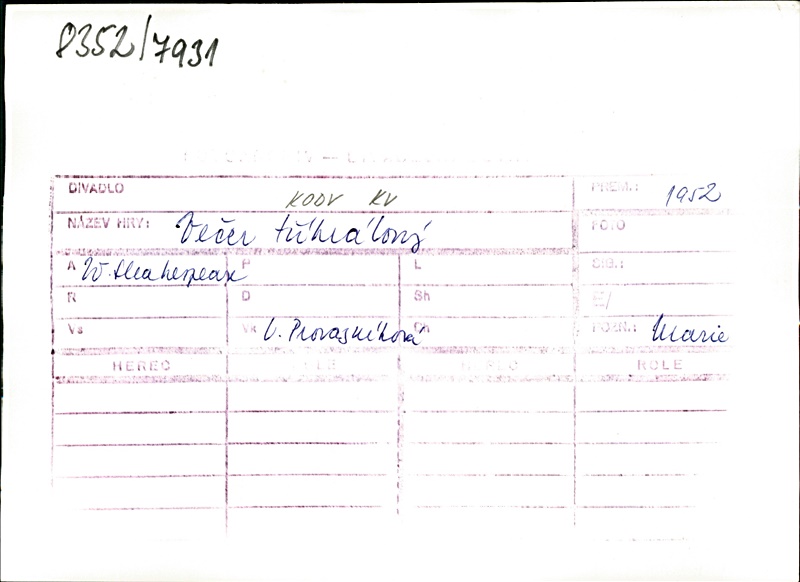 8352/7931
DIVADLO KODV KV PREM.: 1952
NÁZEV HRY: Večer tříkrálový FOTO
A W. Shakespeare P L SIG.:
R D Sh E/
Vs Vk V. Provazníková Ch POZN.: Marie
HEREC ROLE HEREC ROLE